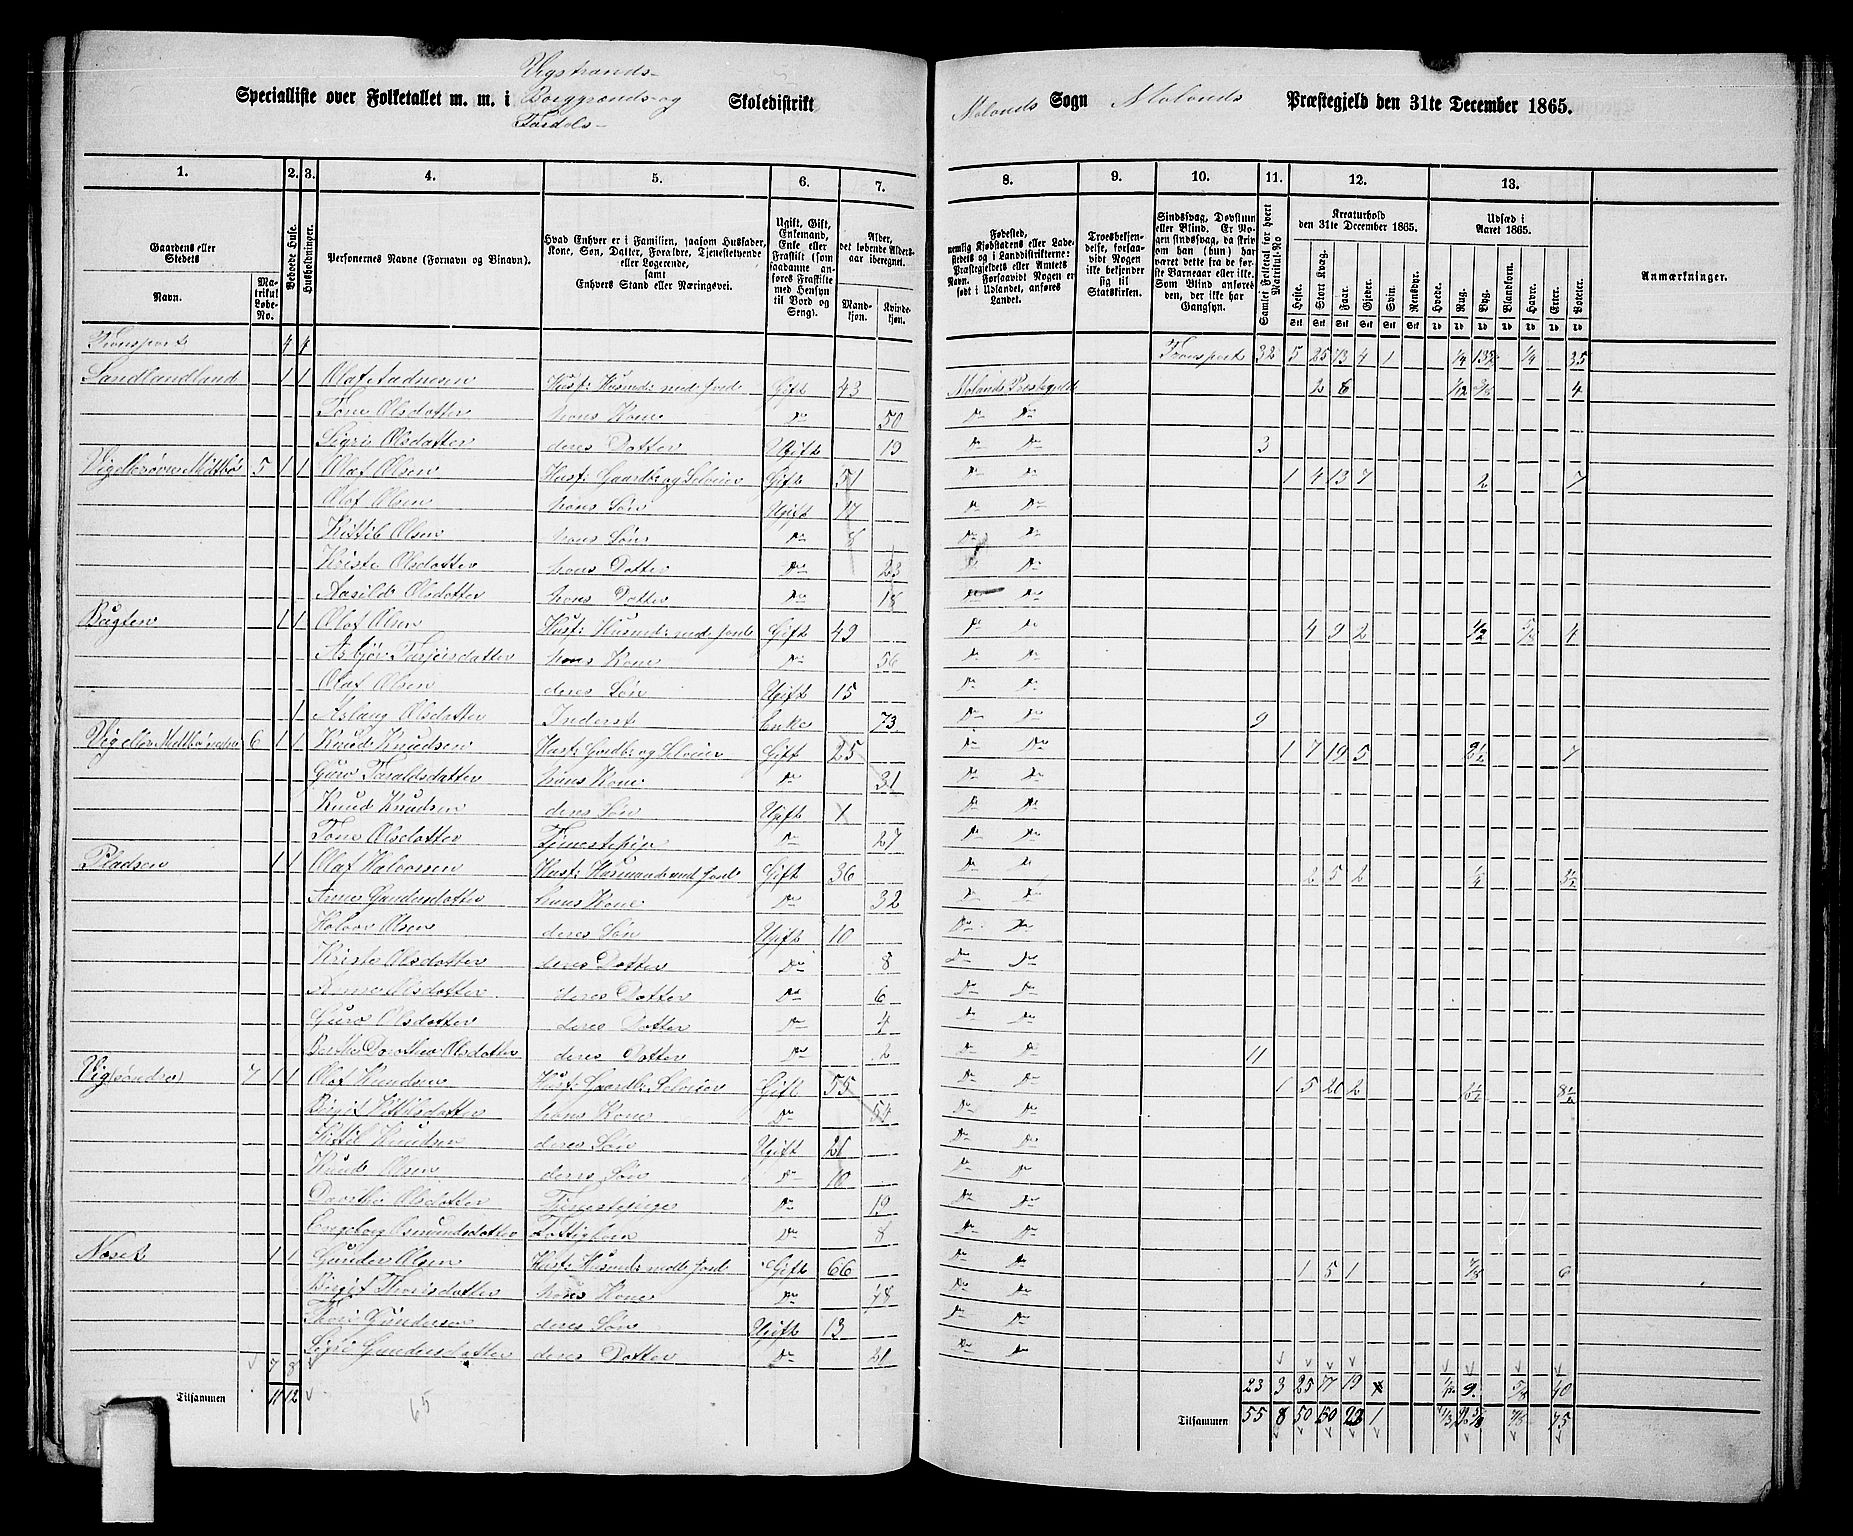 Vigstrands-
Specialliste over Folketallet m. m. i Borggrænds- og Skoledistrikt
Molands Sogn Molands Præstegjeld den 31te December 1865.
1. 2. 3. 4. 5. 6. 7. 8. 9. 10. 11. 12. 13.
Gaardens eller Stedets Navn. Matrikul Løbe-No. Beboede Huse. Husholdninger. Personernes Navne (Fornavn og Tilnavn). Hvad Enhver er i Familien, saasom Husfader, Kone, Søn, Datter, Forældre, Tjenestetyende eller Logerende, samt Enhvers Stand eller Næringsvei. Ugift, Gift, Enkemand, Enke eller Fraskilt (som saadanne anføres Fraskilte med Hensyn til Bord og Seng). Alder, det løbende Aldersaar iberegnet. Mandkjøn. Kvindekjøn.
Fødested, nemlig Kjøbstadens eller Ladestedets eller i Landdistrikterne: Præstegjeldets eller Amtets Navn. Forsaavidt Nogen er født i Udlandet, anføres Landet. Troesbekjendelse, forsaavidt Nogen ikke bekjender sig til Statskirken. Sindssvag, Døvstum eller Blind. Samlet Folketal for hvert Matrikul-No. Kreaturhold den 31te December 1865. Heste. Stort Kvæg. Faar. Gjeder. Svin. Rensdyr. Udsæd i Aaret 1865. Hvede. Rug. Byg. Blandkorn. Havre. Erter. Poteter. Anmærkninger.
Transport 4 4 Transport 32 5 25 73 4 1 35
Sandlandland 1 1 Olaf Aadnesen Husf: Husmd: med Jord Gift 43 Molands Præstegjeld 2 8 4
Tone Olsdatter hans Kone Do 50 Do Do
Sigri Olsdatter deres Datter Ugift 19 Do Do 3
5 1 1 Olaf Olsen Husf: Gaardbr og Selveier Gift 51 Do Do 1 4 13 7 2 7
Olaf Olsen hans Søn Ugift 17 Do Do
Kittil Olsen hans Søn Do 8 Do Do
Kriste Olsdatter hans Datter Do 23 Do Do
Aasild Olsdatter hans Datter Do 18 Do Do
Bugten 1 1 Olaf Olsen Husf: Husmd: med Jord Gift 49 Do Do 4 9 2 1/2 5/8 4
Asbjør Tarjeisdatter hans Kone Do 56 Do Do
Olaf Olsen deres Søn Ugift 15 Do Do
1 Aslaug Olsdatter Inderst Enke 73 Do Do 9
6 1 1 Knud Knudsen Husf: Gardbr og Selveier Gift 25 Do Do 1 7 19 5 2 1/2 7
Guro Taraldsdatter hans Kone Do 31 Do Do
Knud Knudsen deres Søn Ugift 1 Do Do
Tone Olsdatter Tjenestepige Do 27 Do Do
Pladsen 1 1 Olaf Halvorsen Husf: Husmand med Jord Gift 36 Do Do 2 5 2 1/4 3 1/2
Anne Gundersdatter hans Kone Do 32 Do Do
Halvor Olsen deres Søn Ugift 10 Do Do
Kriste Olsdatter deres Datter Do 8 Do Do
Anne Olsdatter deres Datter Do 6 Do Do
Guro Olsdatter deres Datter Do 4 Do Do
Berthe Dorothea Olsdatter deres Datter Do 2 Do Do 11
Vig (søndre) 7 1 1 Olaf Knudsen Husf: Gaardb: Selveier Gift 55 Do Do 1 5 20 2 8 1/2
Birgit Kittilsdatter hans Kone Do 54 Do Do
Kittil Knudsen deres Søn Ugift 21 Do Do
Knud Olsen deres Søn Do 10 Do Do
Dorthe Olsdatter Tjenestepige Do 19 Do Do
Engeborg Osmundsdatter Fattigbarn Do 8 Do Do
Næset 1 1 Gunder Olsen Husf: Husmd: med Jord Gift 66 Do Do 1 5 1 6
Birgit Thorisdatter hans Kone Do 48 Do Do
Thor Gundersen deres Søn Ugift 13 Do Do
Sigri Gundersdatter deres Datter Do 21 Do Do
7 8
23 3 25 77 19 9 5/8 40
Tilsammen 11 12 65 Tilsammen 55 8 50 150 23 1 7/8 75